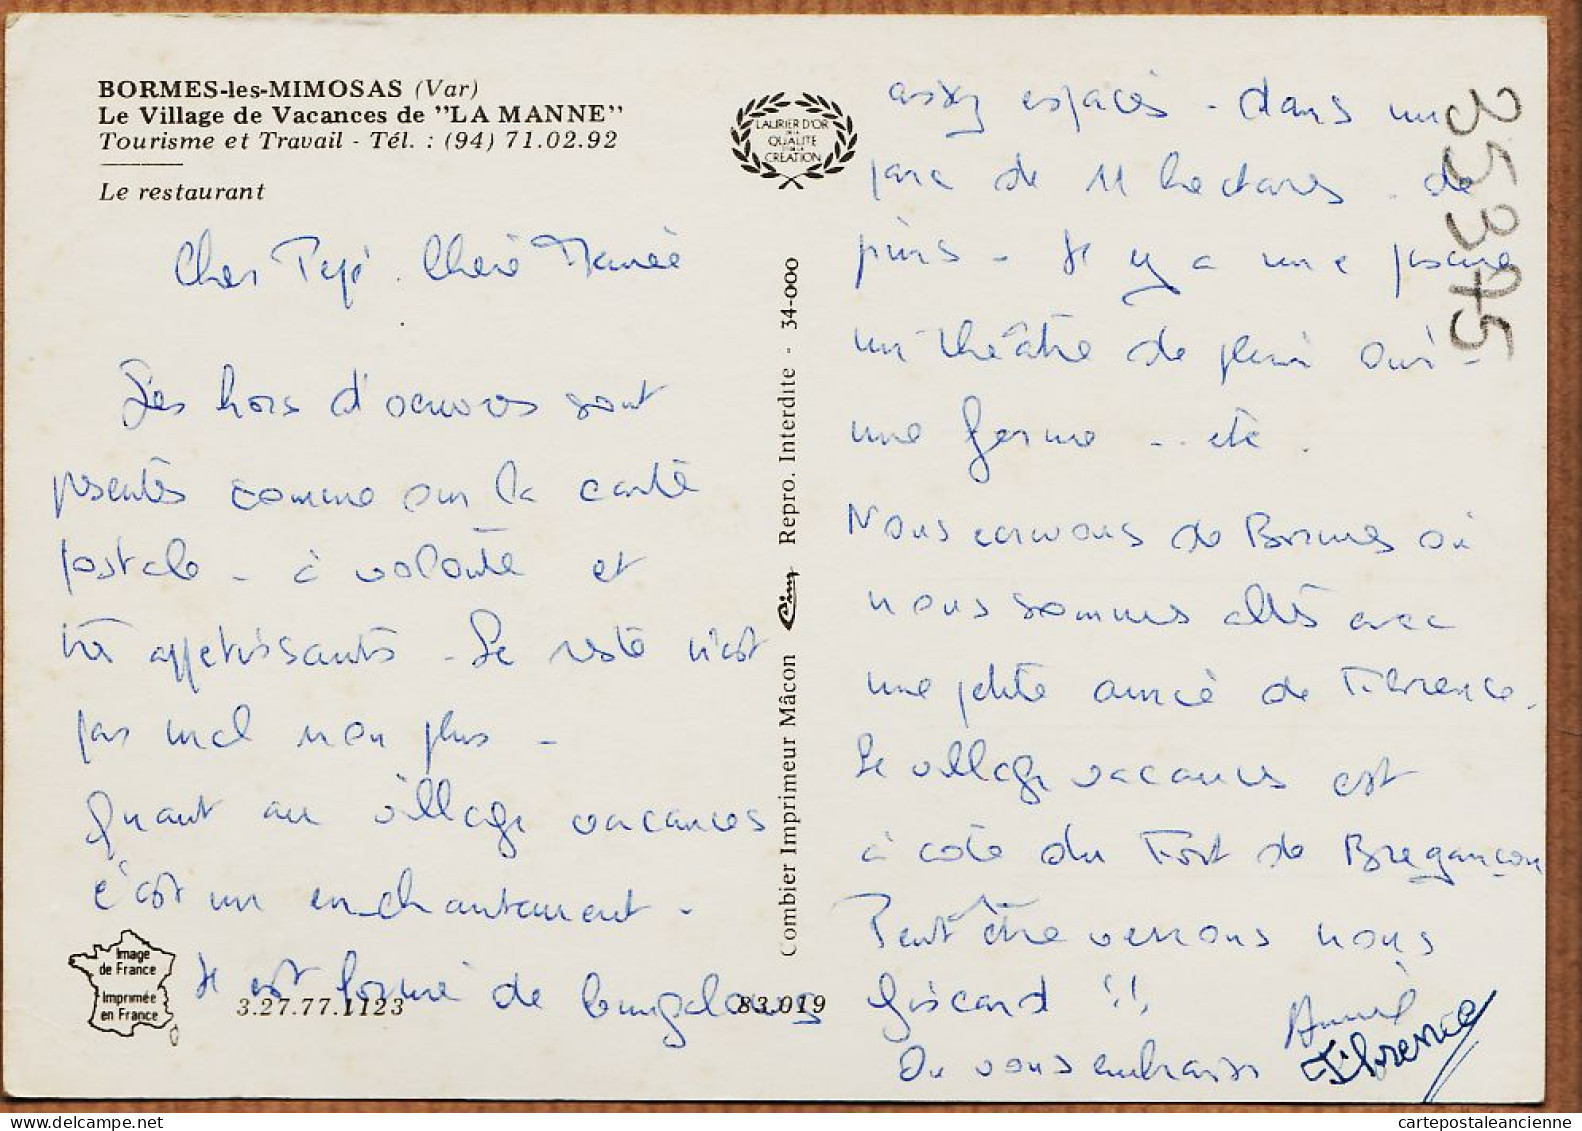 BORMES-les-MIMOSAS (Var)
Le Village de Vacances de "LA MANNE"
Tourisme et Travail - Tél. : (94) 71.02.92
Le restaurant
LAURIER D'OR
DE LA
QUALITE
ET DE LA
CREATION
Cher Pepé. Chère Mamée
Les hors d'oeuvres sont
presentés comme sur la carte
postale - à volonté et
très appetissants - Le reste n'est
pas mal non plus -
Quant au village vacances
c'est un enchantement -
Il est formé de bungalows
Image
de France
Imprimée
en France
3.27.77.1123
83.019
Combier Imprimeur Mâcon Cim Repro. Interdite - 34-000
assez espacés - dans un
parc de 11 hectares de
pins - Il y a une piscine
un théâtre de plein air -
une ferme - etc.
Nous venons de Bormes où
nous sommes allés avec
une petite amie de Florence.
Le village vacances est
à coté du Fort de Bregançon
Peut être verrons nous
Giscard !!
On vous embrasse
Annie
Florence
35375
cartepostaleancienne